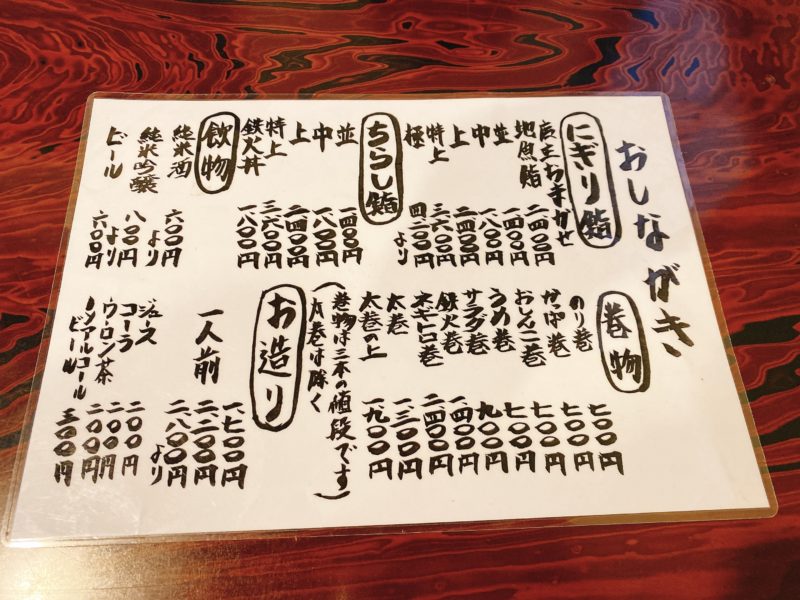 おしながき
にぎり鮨
店主おまかせ
地魚鮨 二四〇〇円
並 一四〇〇円
中 一八〇〇円
上 二四〇〇円
特上 三六〇〇円
極 四二〇〇円より
ちらし鮨
並 一四〇〇円
中 一八〇〇円
上 二四〇〇円
特上 三六〇〇円
鉄火丼 一八〇〇円
飲物
純米酒 六〇〇円より
純米吟醸 八〇〇円より
ビール 六〇〇円
巻物
のり巻 七〇〇円
かっぱ巻 七〇〇円
おしんこ巻 七〇〇円
うめ巻 七〇〇円
サラダ巻 九〇〇円
鉄火巻 一四〇〇円
ネギトロ巻 二四〇〇円
太巻 一三〇〇円
太巻の上 一九〇〇円
(巻物は三本の値段です)
(太巻は除く
お造り
一人前 一、七〇〇円
二、二〇〇円
二、八〇〇円より
ジュース 二〇〇円
コーラ 二〇〇円
ウーロン茶 二〇〇円
ノンアルコール
ビール 三〇〇円